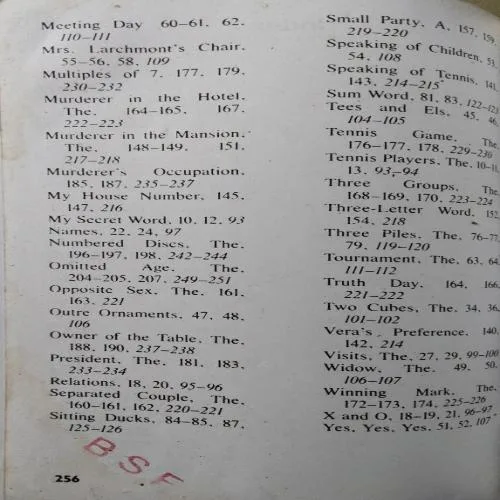 Meeting Day 60–61, 62,
110–111
Mrs. Larchmont's Chair,
55–56, 58, 109
Multiples of 7, 177, 179,
230–232
Murderer in the Hotel,
The, 164–165, 167,
222–223
Murderer in the Mansion,
The, 148–149, 151,
217–218
Murderer's Occupation,
185, 187, 235–237
My House Number, 145,
147, 216
My Secret Word, 10, 12, 93
Names, 22, 24, 97
Numbered Discs, The,
196–197, 198, 242–244
Omitted Age, The,
204–205, 207, 249–251
Opposite Sex, The, 161,
163, 221
Outre Ornaments, 47, 48,
106
Owner of the Table, The,
188, 190, 237–238
President, The, 181, 183,
233–234
Relations, 18, 20, 95–96
Separated Couple, The,
160–161, 162, 220–221
Sitting Ducks, 84–85, 87,
125–126
BSF
256
Small Party, A, 157, 159,
219–220
Speaking of Children, 53,
54, 108
Speaking of Tennis, 141,
143, 214–215
Sum Word, 81, 83, 122–123
Tees and Els, 45, 46,
104–105
Tennis Game, The,
176–177, 178, 229–230
Tennis Players, The, 10–11,
13, 93–94
Three Groups, The,
168–169, 170, 223–224
Three-Letter Word, 152,
154, 218
Three Piles, The, 76–77,
79, 119–120
Tournament, The, 63, 64,
111–112
Truth Day, 164, 166,
221–222
Two Cubes, The, 34, 36,
101–102
Vera's Preference, 140,
142, 214
Visits, The, 27, 29, 99–100
Widow, The, 49, 50,
106–107
Winning Mark, The,
172–173, 174, 225–226
X and O, 18–19, 21, 96–97
Yes, Yes, Yes, 51, 52, 107